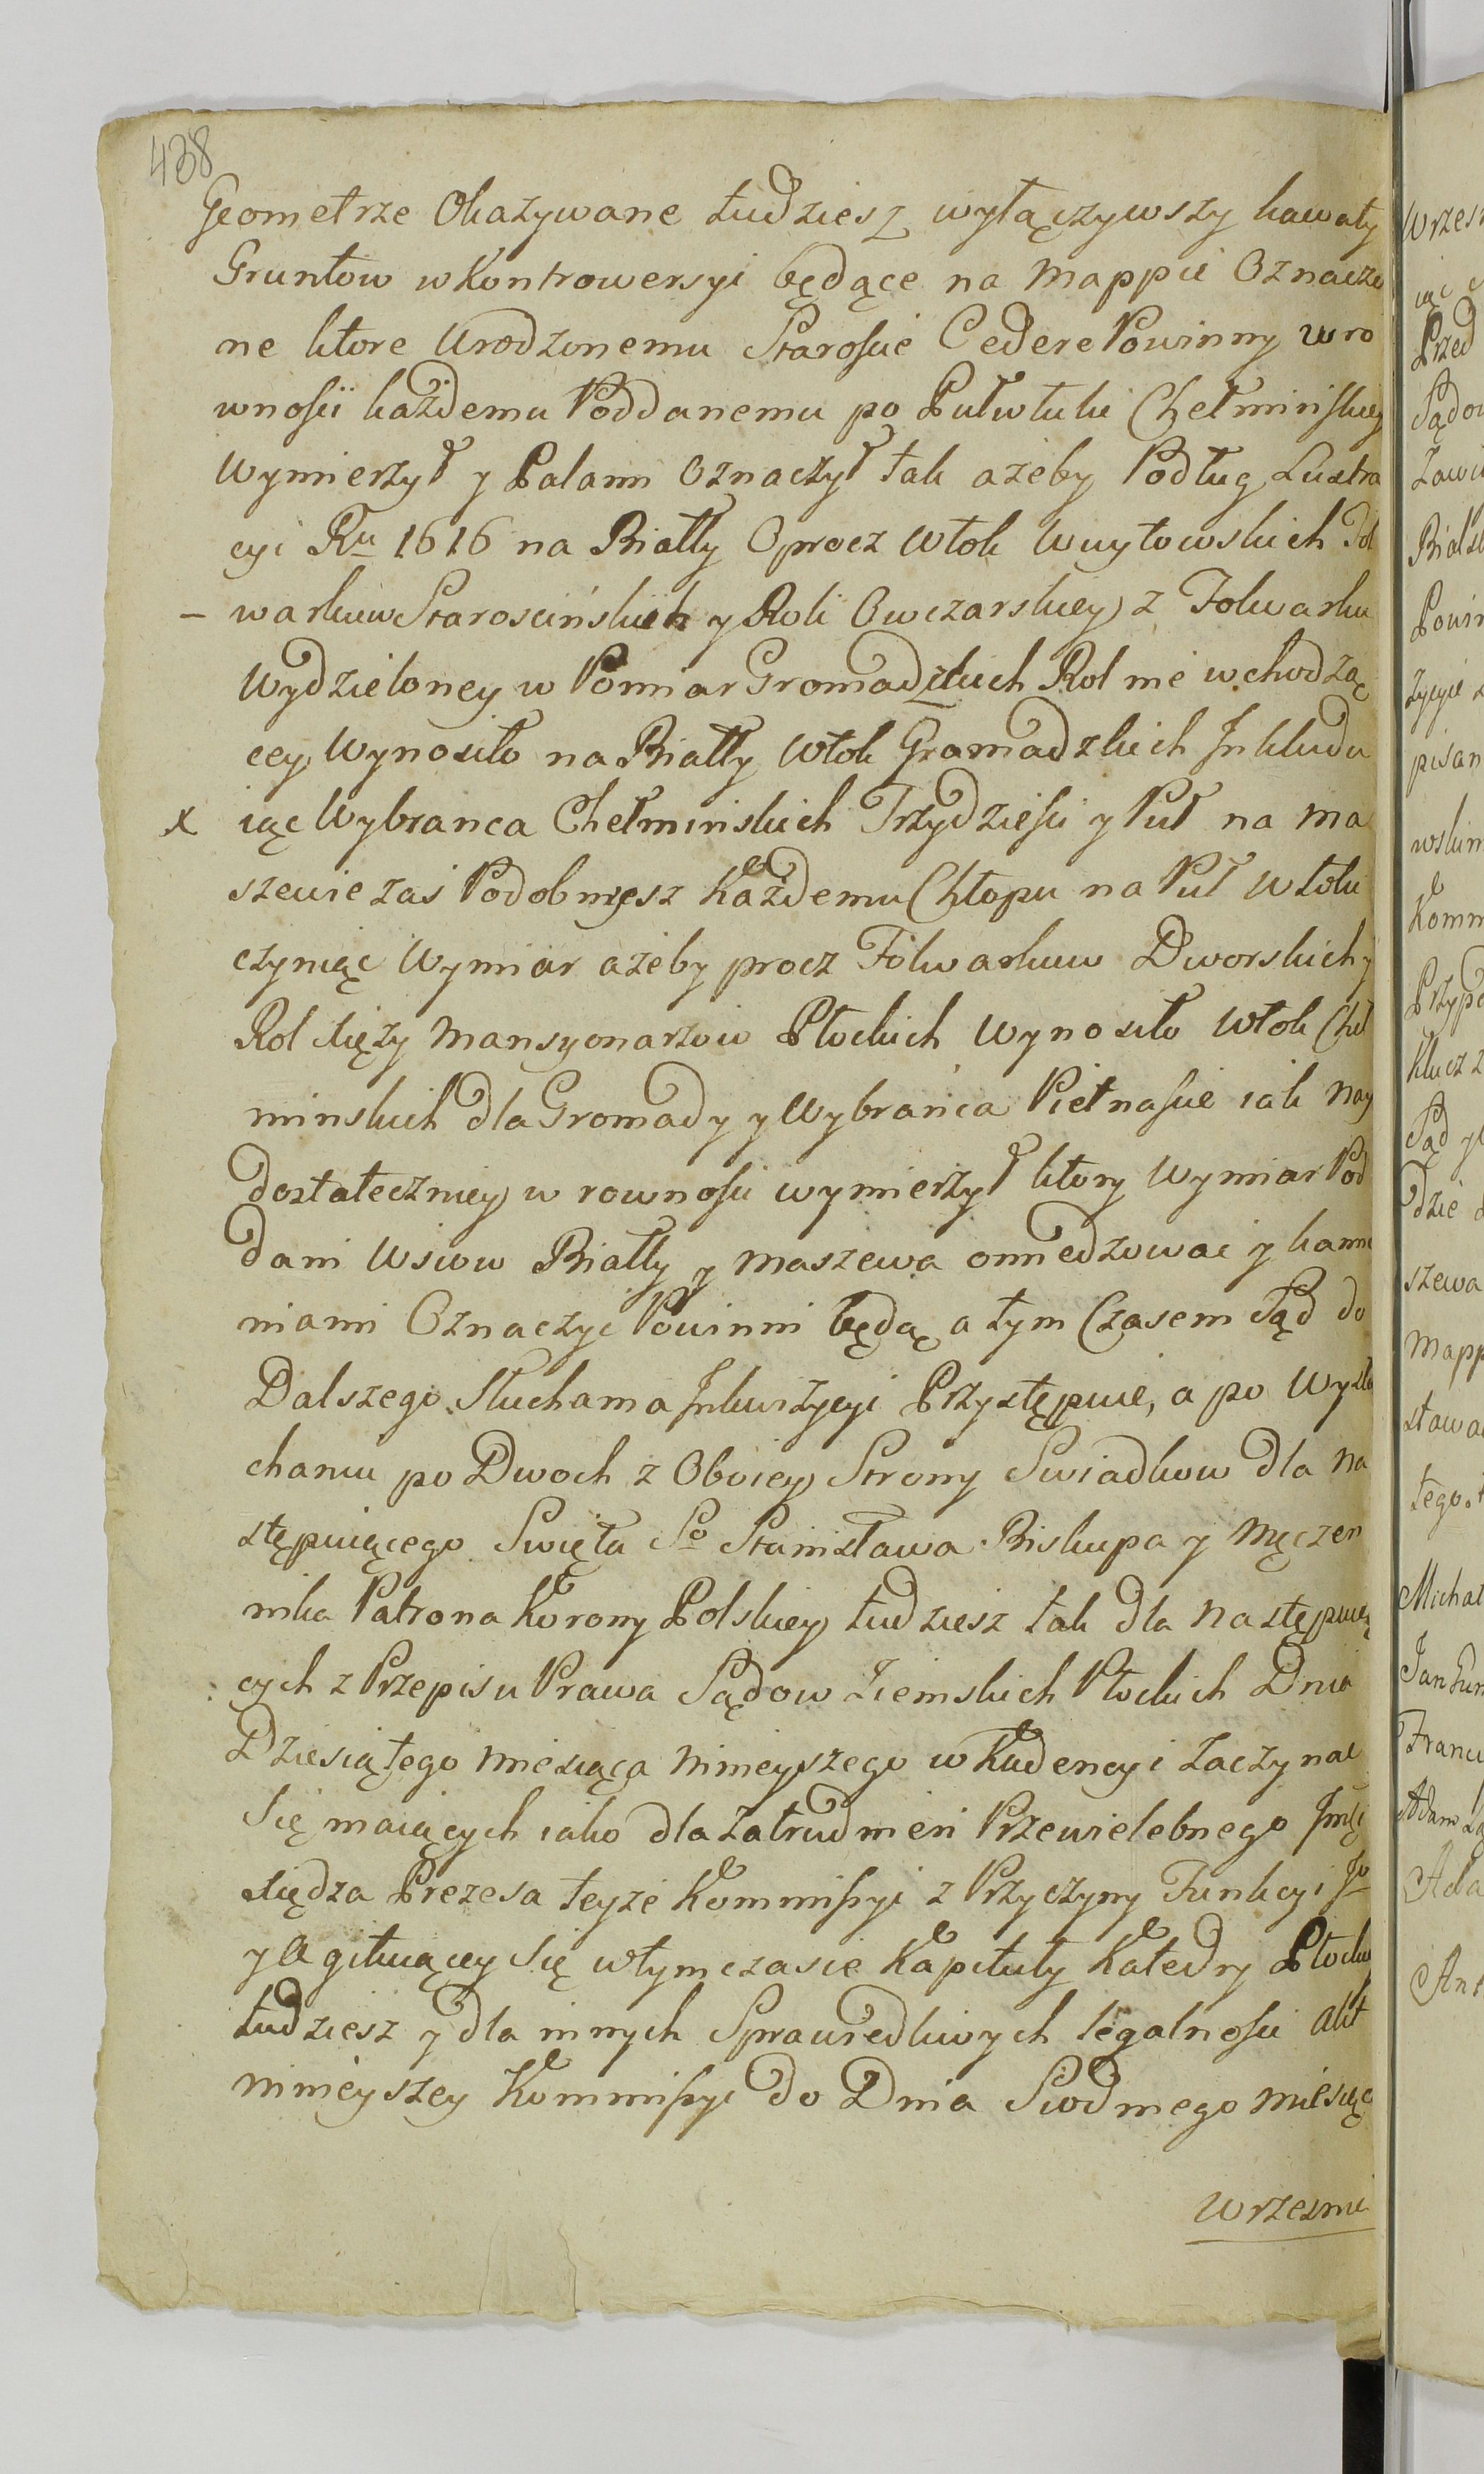 438
Geometrze Okazywane tudziesz wyłączywszy kawały
Gruntow w Kontrowersyi będące na Mappie Oznaczo
ne ktore Urodzonemu Staroscie Cedere Powinny w ro
wnosci każdemu Poddanemu po Pułwłuki Chełminskiey
Wymierzył y Palami Oznaczył tak ażeby Podług Lustra
cyi Ru 1616 na Biały Oprocz Włok Wuytowskich Fol
– warkuw Staroscińskich y Roli Owczarskiey z Folwarku
Wydzieloney w Pomiar Gromadzkich Rol nie wchodzą
cey, Wynosiło na Biały Włok Gromadzkich Inkludu
x iąc Wybranca Chełminskich Trzydziesci y Puł na Ma
szewie zas Podobniesz Każdemu Chłopu na Puł Włoku
czyniąc Wymiar ażeby procz Folwarkuw Dworskich y
Rol Xięży Mansyonarzow Płockich Wynosiło Włok Cheł
minskich dla Gromady y Wybranca Pietnascie iak nay
dostateczniey w rownosci wymierzył ktory Wymiar Pod
dani Wsiow Biały y Maszewa omiedzować y kamie
niami Oznaczyć Powinni będą a tym Czasem Sąd do
Dalszego Słuchania Inkwizycyi Przystępuie, a po Wysłu
chaniu po Dwoch z Oboiey Strony Swiadkow dla na
stępuiącego Swięta So Stanisława Biskupa y Męczen
nika Patrona Korony Polskiey tudziesz tak dla Następuią
cych z Przepisu Prawa Sądow Ziemskich Płockich Dnia
Dziesiątego Miesiąca Ninieyszego w Kadencyi Zaczynać
Się maiących iako dla Zatrudnień Przewielebnego Jmci
Xiędza Prezesa teyże Kommissyi z Przyczyny Funkcyi Jo
y Agituiącey Się w tym czasie Kapituły Katedry Płocki
tudziesz y dla innych Sprawiedliwych legalnosci Akt
ninieyszey Kommissyi do Dnia Siodmego Miesiąca
Wrzesnia